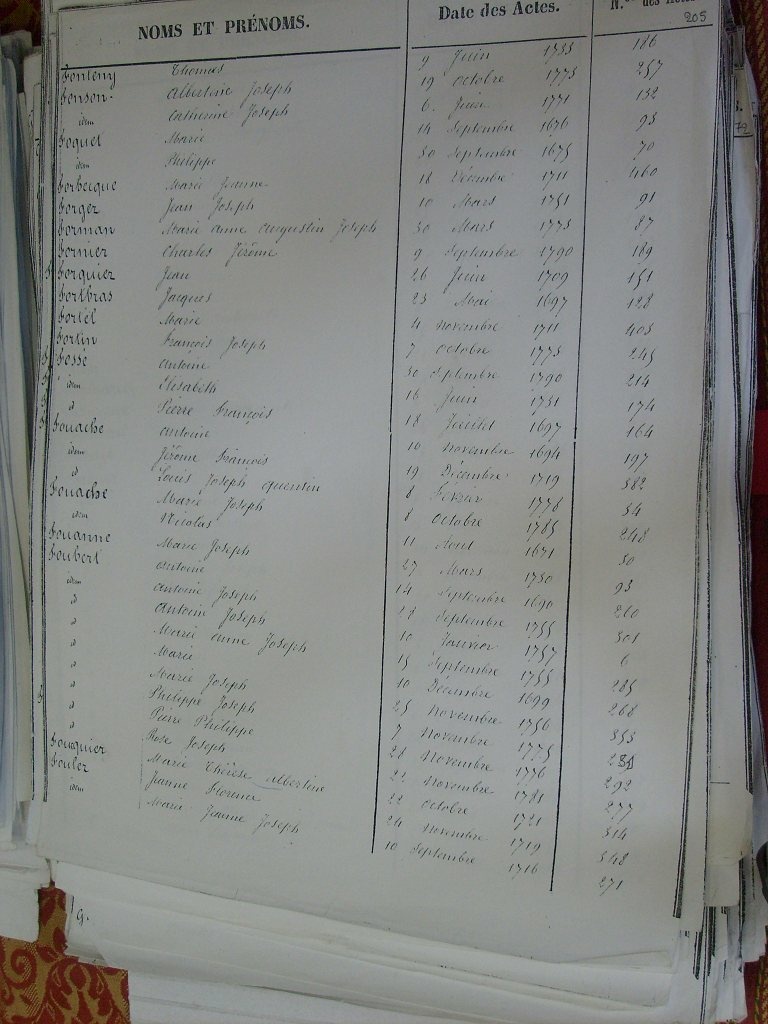 NOMS ET PRÉNOMS. Date des Actes. N.os des Actes
205
Fonteny Thomas 9 Juin 1733 186
Fonson Albertine Joseph 19 Octobre 1773 257
idem Catherine Joseph 6 Juin 1771 132
Foquet Marie 14 Septembre 1676 93
idem Philippe 30 Septembre 1675 70
Forbecque Marie Jeanne 18 Décembre 1711 460
Forger Jean Joseph 10 Mars 1751 91
Forman Marie Anne Augustin Joseph 30 Mars 1773 87
Fornier Charles Jérôme 9 Septembre 1790 189
Forquiez Jean 26 Juin 1709 151
Fortbras Jacques 23 Mai 1697 128
Fortel Marie 4 Novembre 1711 403
Fortin François Joseph 7 Octobre 1773 245
Fosse Antoine 30 Septembre 1790 214
idem Elisabeth 16 Juin 1731 174
d Pierre François 18 Juillet 1697 164
Fouache Antoine 10 Novembre 1694 197
idem Jérôme François 19 Décembre 1719 382
d Louis Joseph Quentin 8 Février 1778 34
Fouache Marie Joseph 8 Octobre 1785 248
idem Nicolas 11 Aout 1671 30
Fouanne Marie Joseph 27 Mars 1730 93
Foubert Antoine 14 Septembre 1690 260
idem Antoine Joseph 28 Septembre 1755 301
d Antoine Joseph 10 Janvier 1757 6
d Marie Anne Joseph 15 Septembre 1755 285
d Marie 10 Décembre 1699 268
d Marie Joseph 25 Novembre 1756 353
d Philippe Joseph 7 Novembre 1775
d Pierre Philippe 28 Novembre 1776 292
d Rose Joseph 22 Novembre 1781 277
Fouquier Marie Thérèse Albertine 22 Octobre 1721 314
Fouler Jeanne Florence 24 Novembre 1719 348
idem Marie Jeanne Joseph 10 Septembre 1716 271